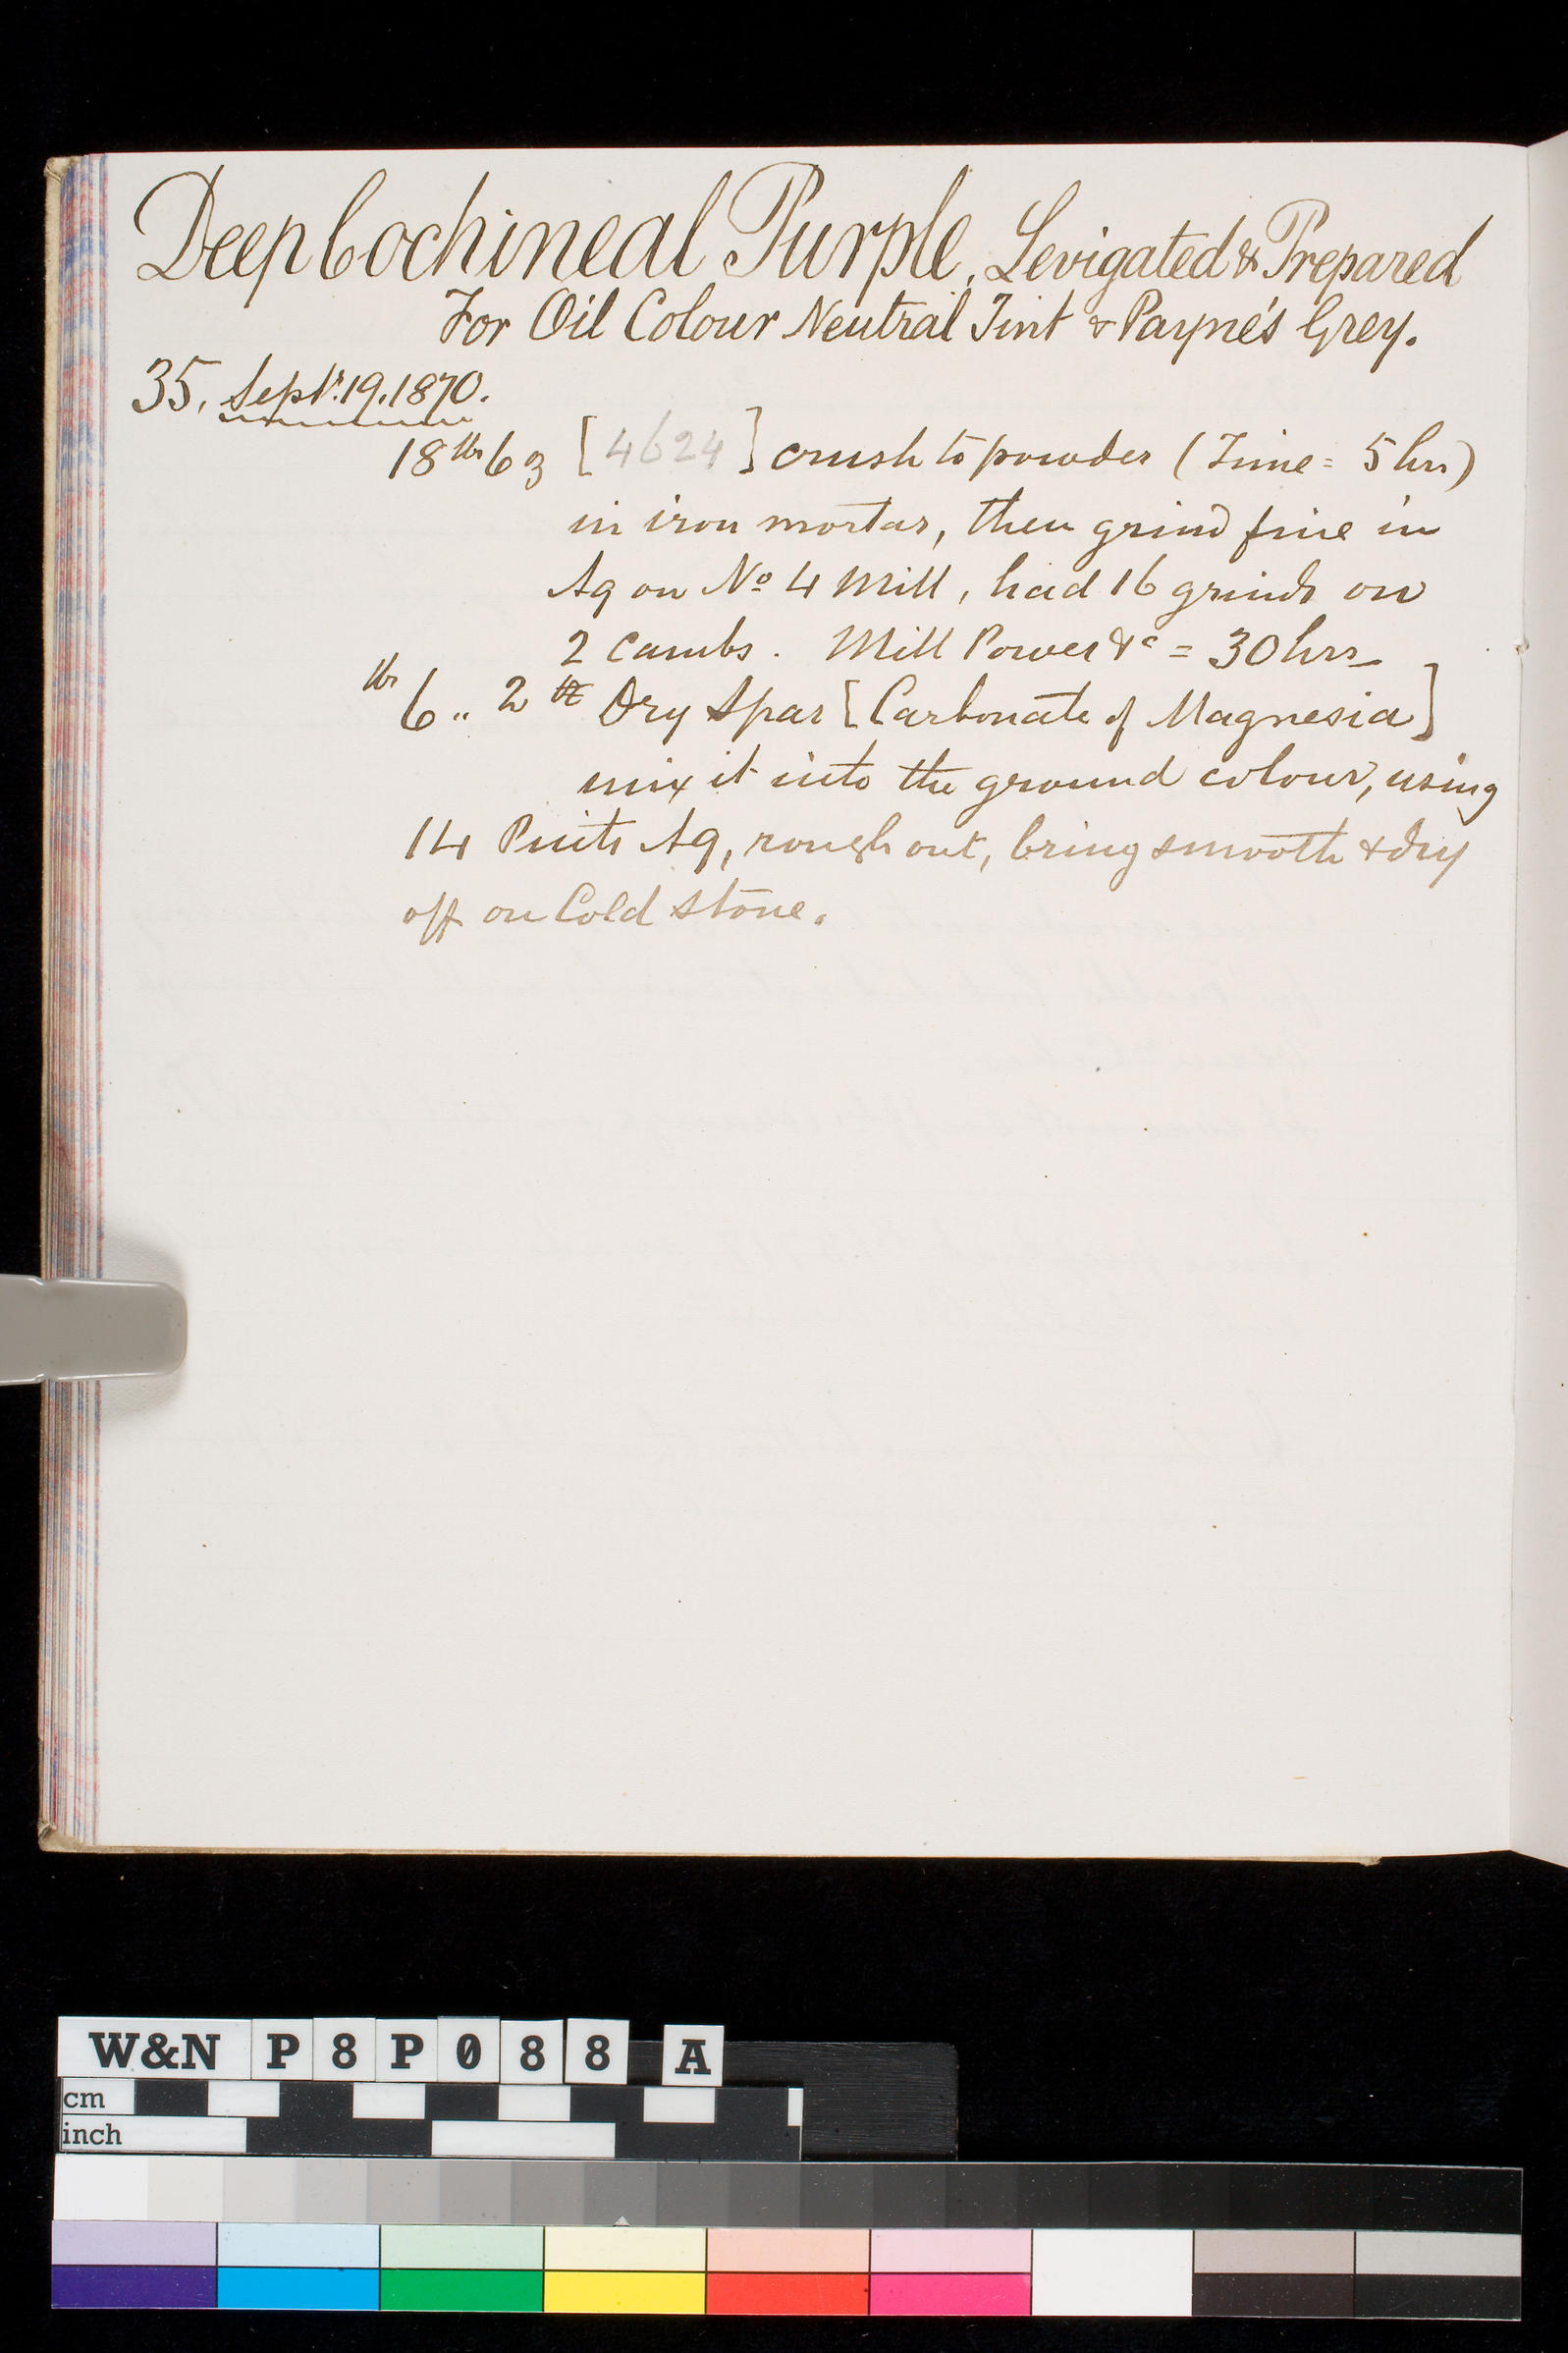 Deep Cochineal Purple, Levigated & Prepared
For Oil Colour Neutral Tint & Payne's Grey.
35. Septr. 19. 1870.
18 lbs 6 3 [4624] crush to powder (Time = 5 hrs)
in iron mortar, then grind fine in
Aq on No 4 Mill, had 16 grinds on
2 Cambs. Mill Power &c = 30 hrs
lbs 6 .. 2 Dry Spar [Carbonate of Magnesia]
mix it into the ground colour, using
14 Pints Aq, rough out, bring smooth & dry
off on Cold stone.
W&N P8P088 A
cm
inch